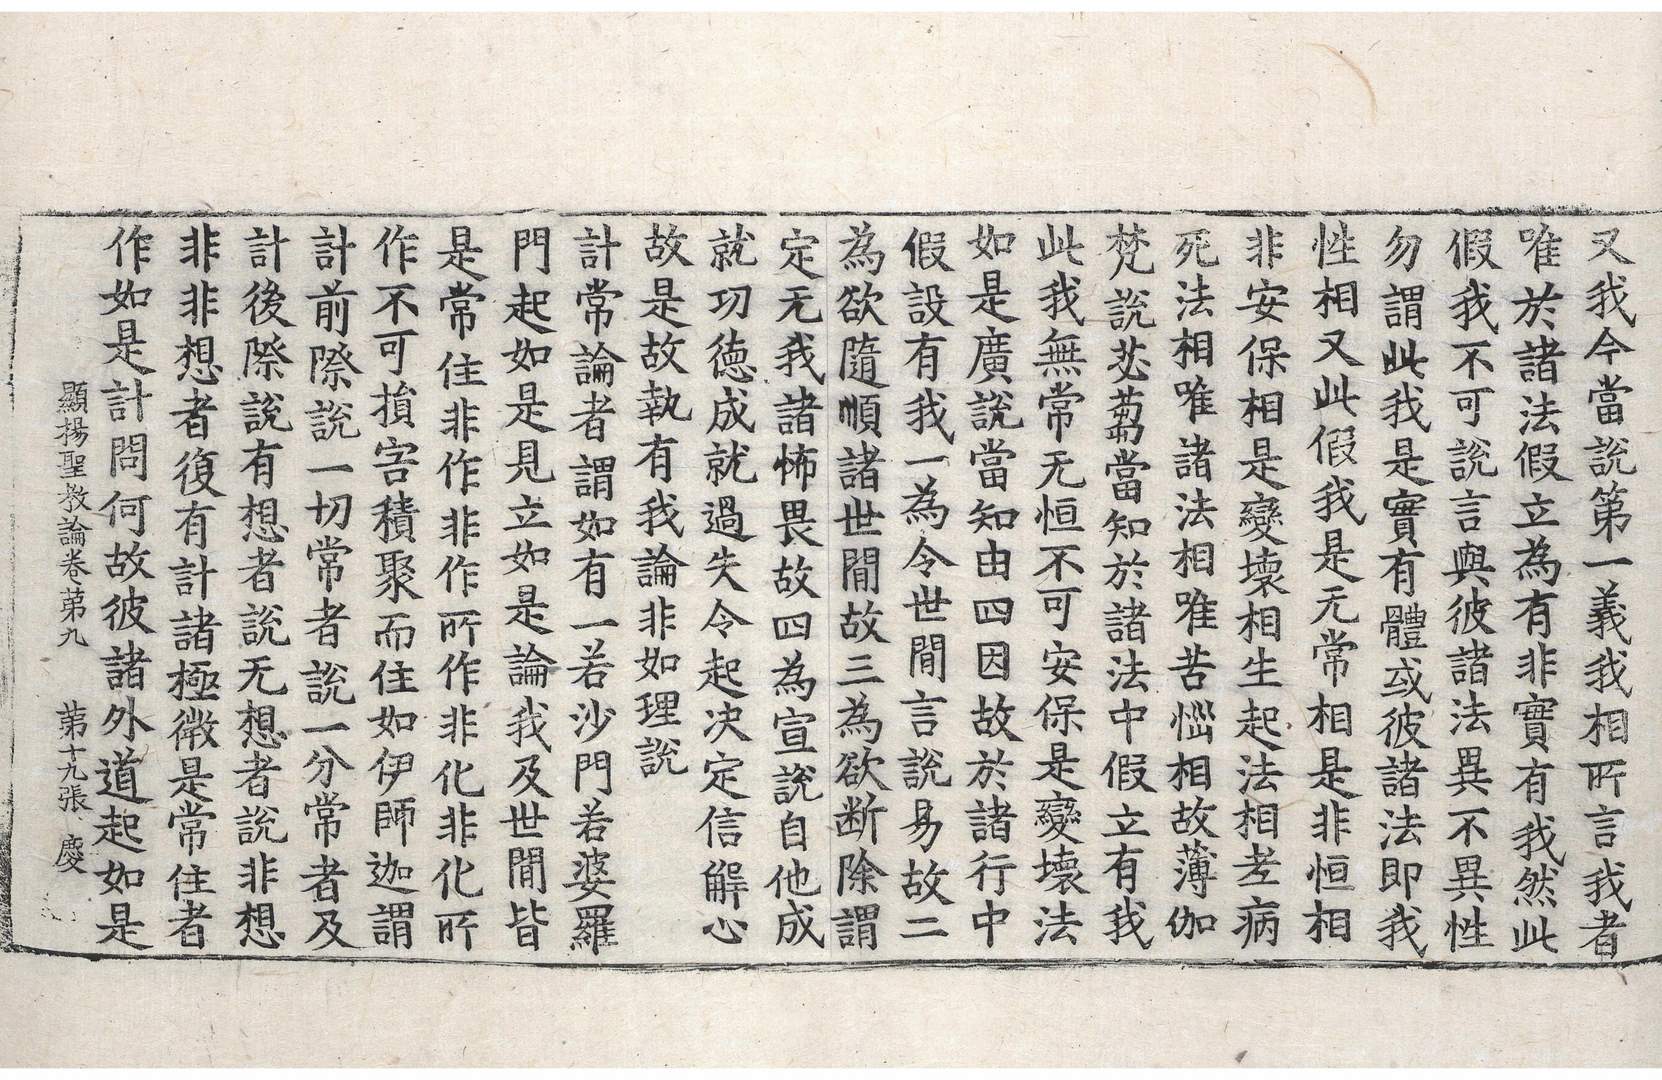 又我今當說第一義我相所言我者
唯於諸法假立為有非實有我然此
假我不可說言與彼諸法異不異性
勿謂此我是實有體或彼諸法即我
性相又此假我是无常相是非恒相
非安保相是變壞相生起法相老病
死法相唯諸法相唯苦惱相故薄伽
梵說苾蒭當知於諸法中假立有我
此我無常无恒不可安保是變壞法
如是廣說當知由四因故於諸行中
假設有我一為令世間言說易故二
為欲隨順諸世間故三為欲断除謂
定无我諸怖畏故四為宣說自他成
就功德成就過失令起决定信解心
故是故執有我論非如理說
計常論者謂如有一若沙門若婆羅
門起如是見立如是論我及世間皆
是常住非作非作所作非化非化所
作不可損害積聚而住如伊師迦謂
計前際說一切常者說一分常者及
計後際說有想者說无想者說非想
非非想者復有計諸極微是常住者
作如是計問何故彼諸外道起如是
顯揚聖教論卷第九　第十九張　慶